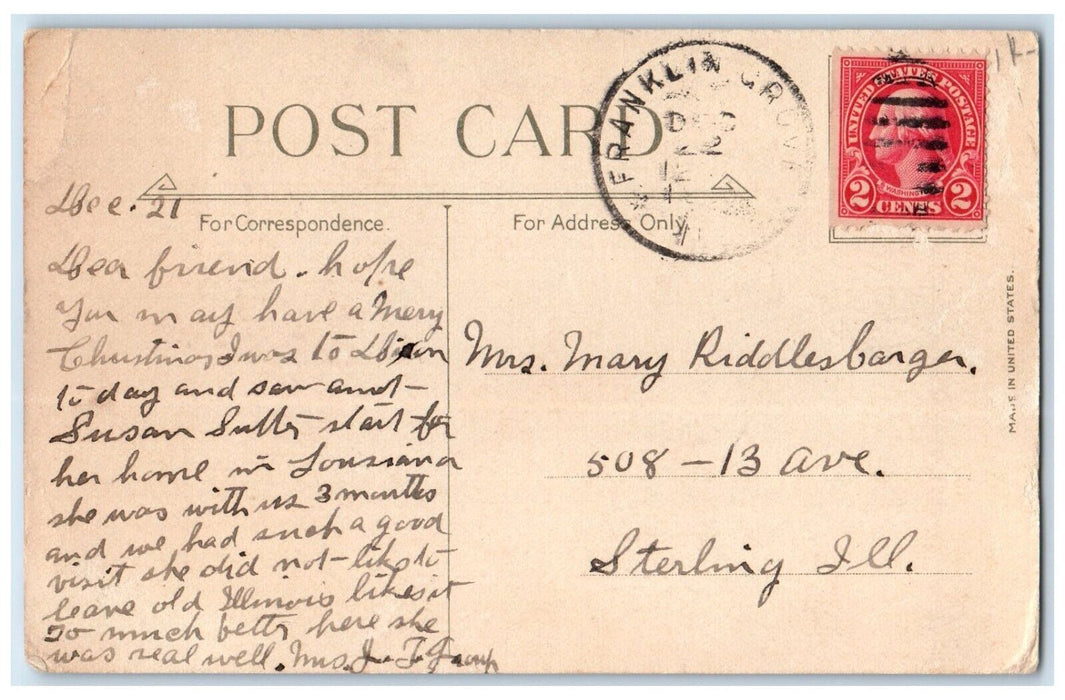 POST CARD
FRANKLIN GROVE
UNITED STATES POSTAGE
WASHINGTON
2 CENTS 2
For Correspondence.
For Address Only.
MADE IN UNITED STATES.
Dec. 21
Dear friend. hope
you may have a Mery
Christmas I was to Dixon
to day and saw aunt
Susan Sutter start for
her home in Lousiana
she was with us 3 months
and we had such a good
visit she did not like to
leave old Illinois likes it
so much bettr here she
was real well. Mrs. J. T.
Mrs. Mary Riddlesbarger.
508 - 13 Ave.
Sterling Ill.